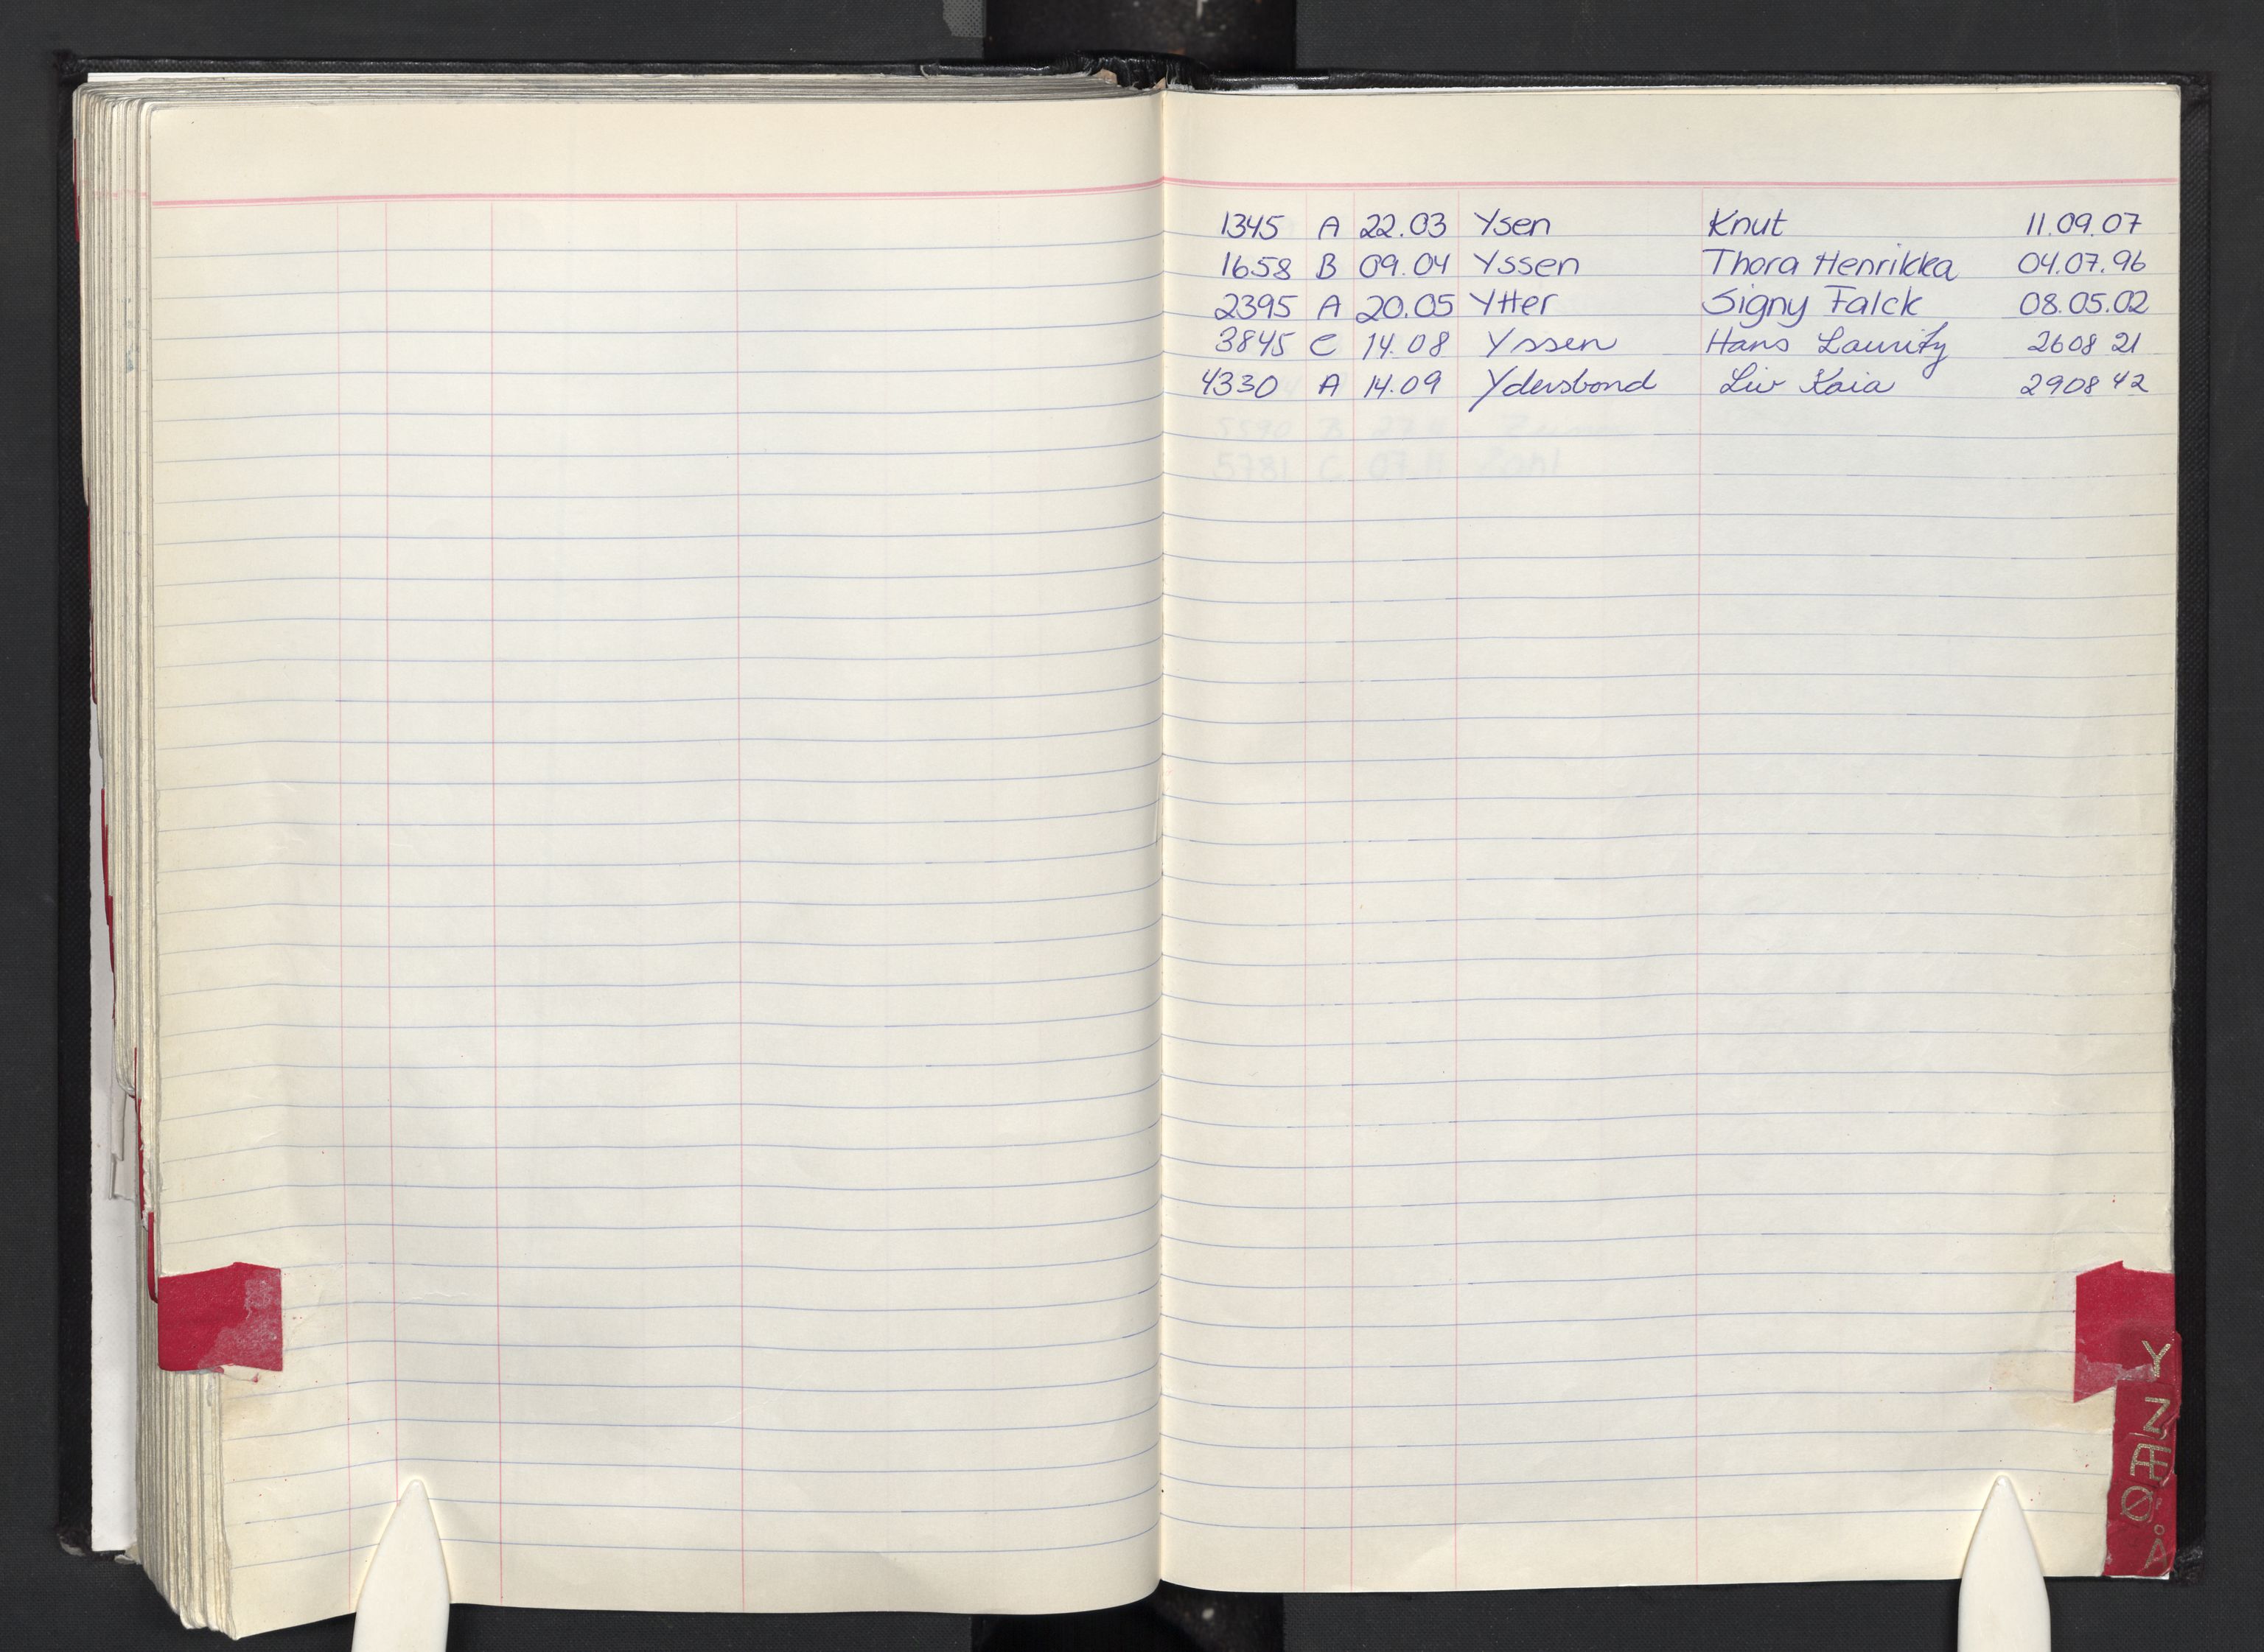 1345 A 22.03 Ysen Knut 11.09.07
1658 B 09.04 Yssen Thora Henrikka 04.07.96
2395 A 20.05 Ytter Signy Falck 08.05.02
3845 C 14.08 Yssen Hans Lauritz 2608 21
4330 A 14.09 Ydersbond Liv Kaia 2908 42
5781 C 07.11
Y
Z
Æ
Ø
Å